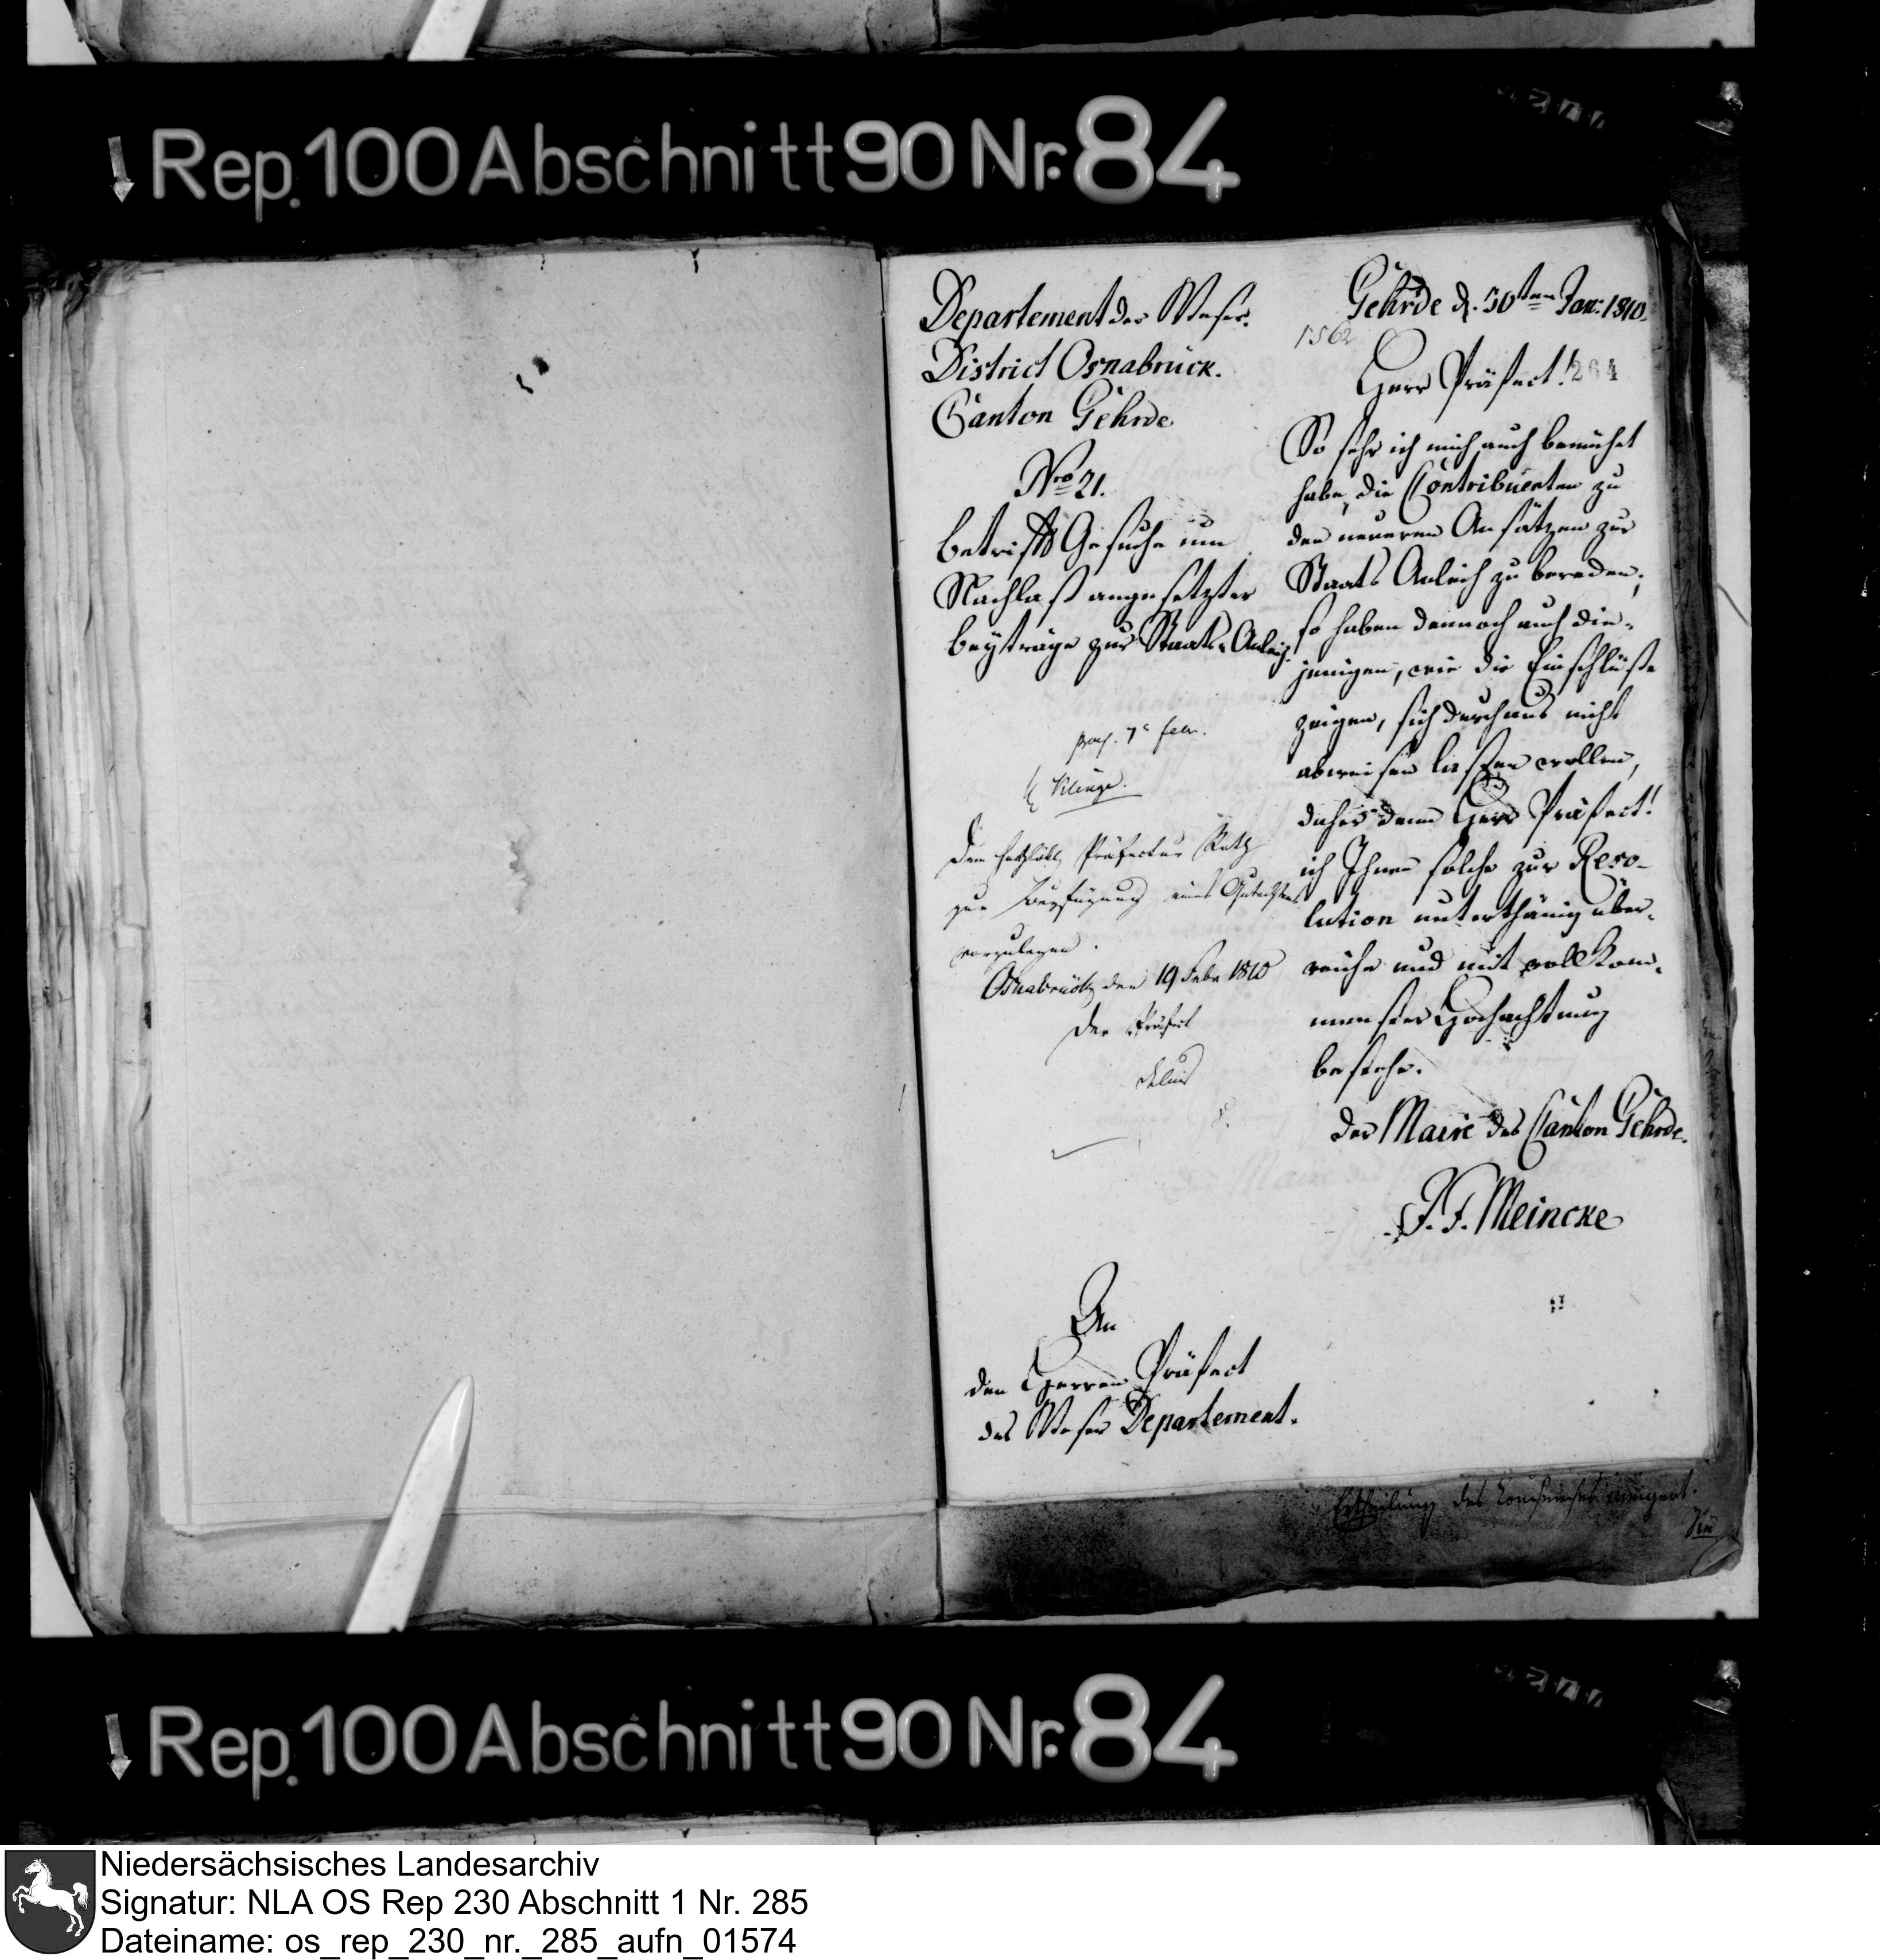 Rep. 100 Abschnitt 90 Nr. 84
Departement der Weser.
District Osnabrück.
Canton Gehrde
Nro 21.
betrifft Gesuche um
Nachlaß angesetzter
beyträge zur Staats-Anleih.
7 Febr.
Klinge.
Dem Präfectur Rath
zur eines Gutachtens
vorzulegen.
Osnabrück den 19 Febr 1810
Der Präfect
Delius
An
den Herren Präfect
des Weser Departement.
Gehrde d. 30ten Jan: 1810.
1562
Herr Präfect!
264
So sehr ich mich auch bemühet
habe, die Contribuenten zu
den neueren Ansätzen zur
Staats Anleih zu bereden,
so haben dennoch auch die-
jenigen, wie die Einschlüße
zeigen, sich durchaus nicht
abweisen laßen wollen,
daher denn Herr Präfect!
ich Ihnen solche zur Reso-
lution unterthänig über-
reiche und mit vollkom-
menster Hochachtung
bestehe.
der Maire des Canton Gehrde.
J. F. Meincke
Ertheilung des Consenses
Rep. 100 Abschnitt 90 Nr. 84
Niedersächsisches Landesarchiv
Signatur: NLA OS Rep 230 Abschnitt 1 Nr. 285
Dateiname: os_rep_230_nr._285_aufn_01574